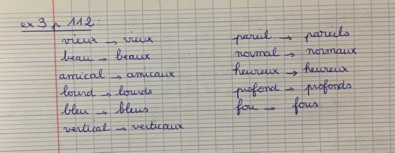 ex 3 p 112 :
vieux → vieux
beau → beaux
amical → amicaux
lourd → lourds
bleu → bleus
vertical → verticaux
pareil → pareils
normal → normaux
heureux → heureux
profond → profonds
fou → fous